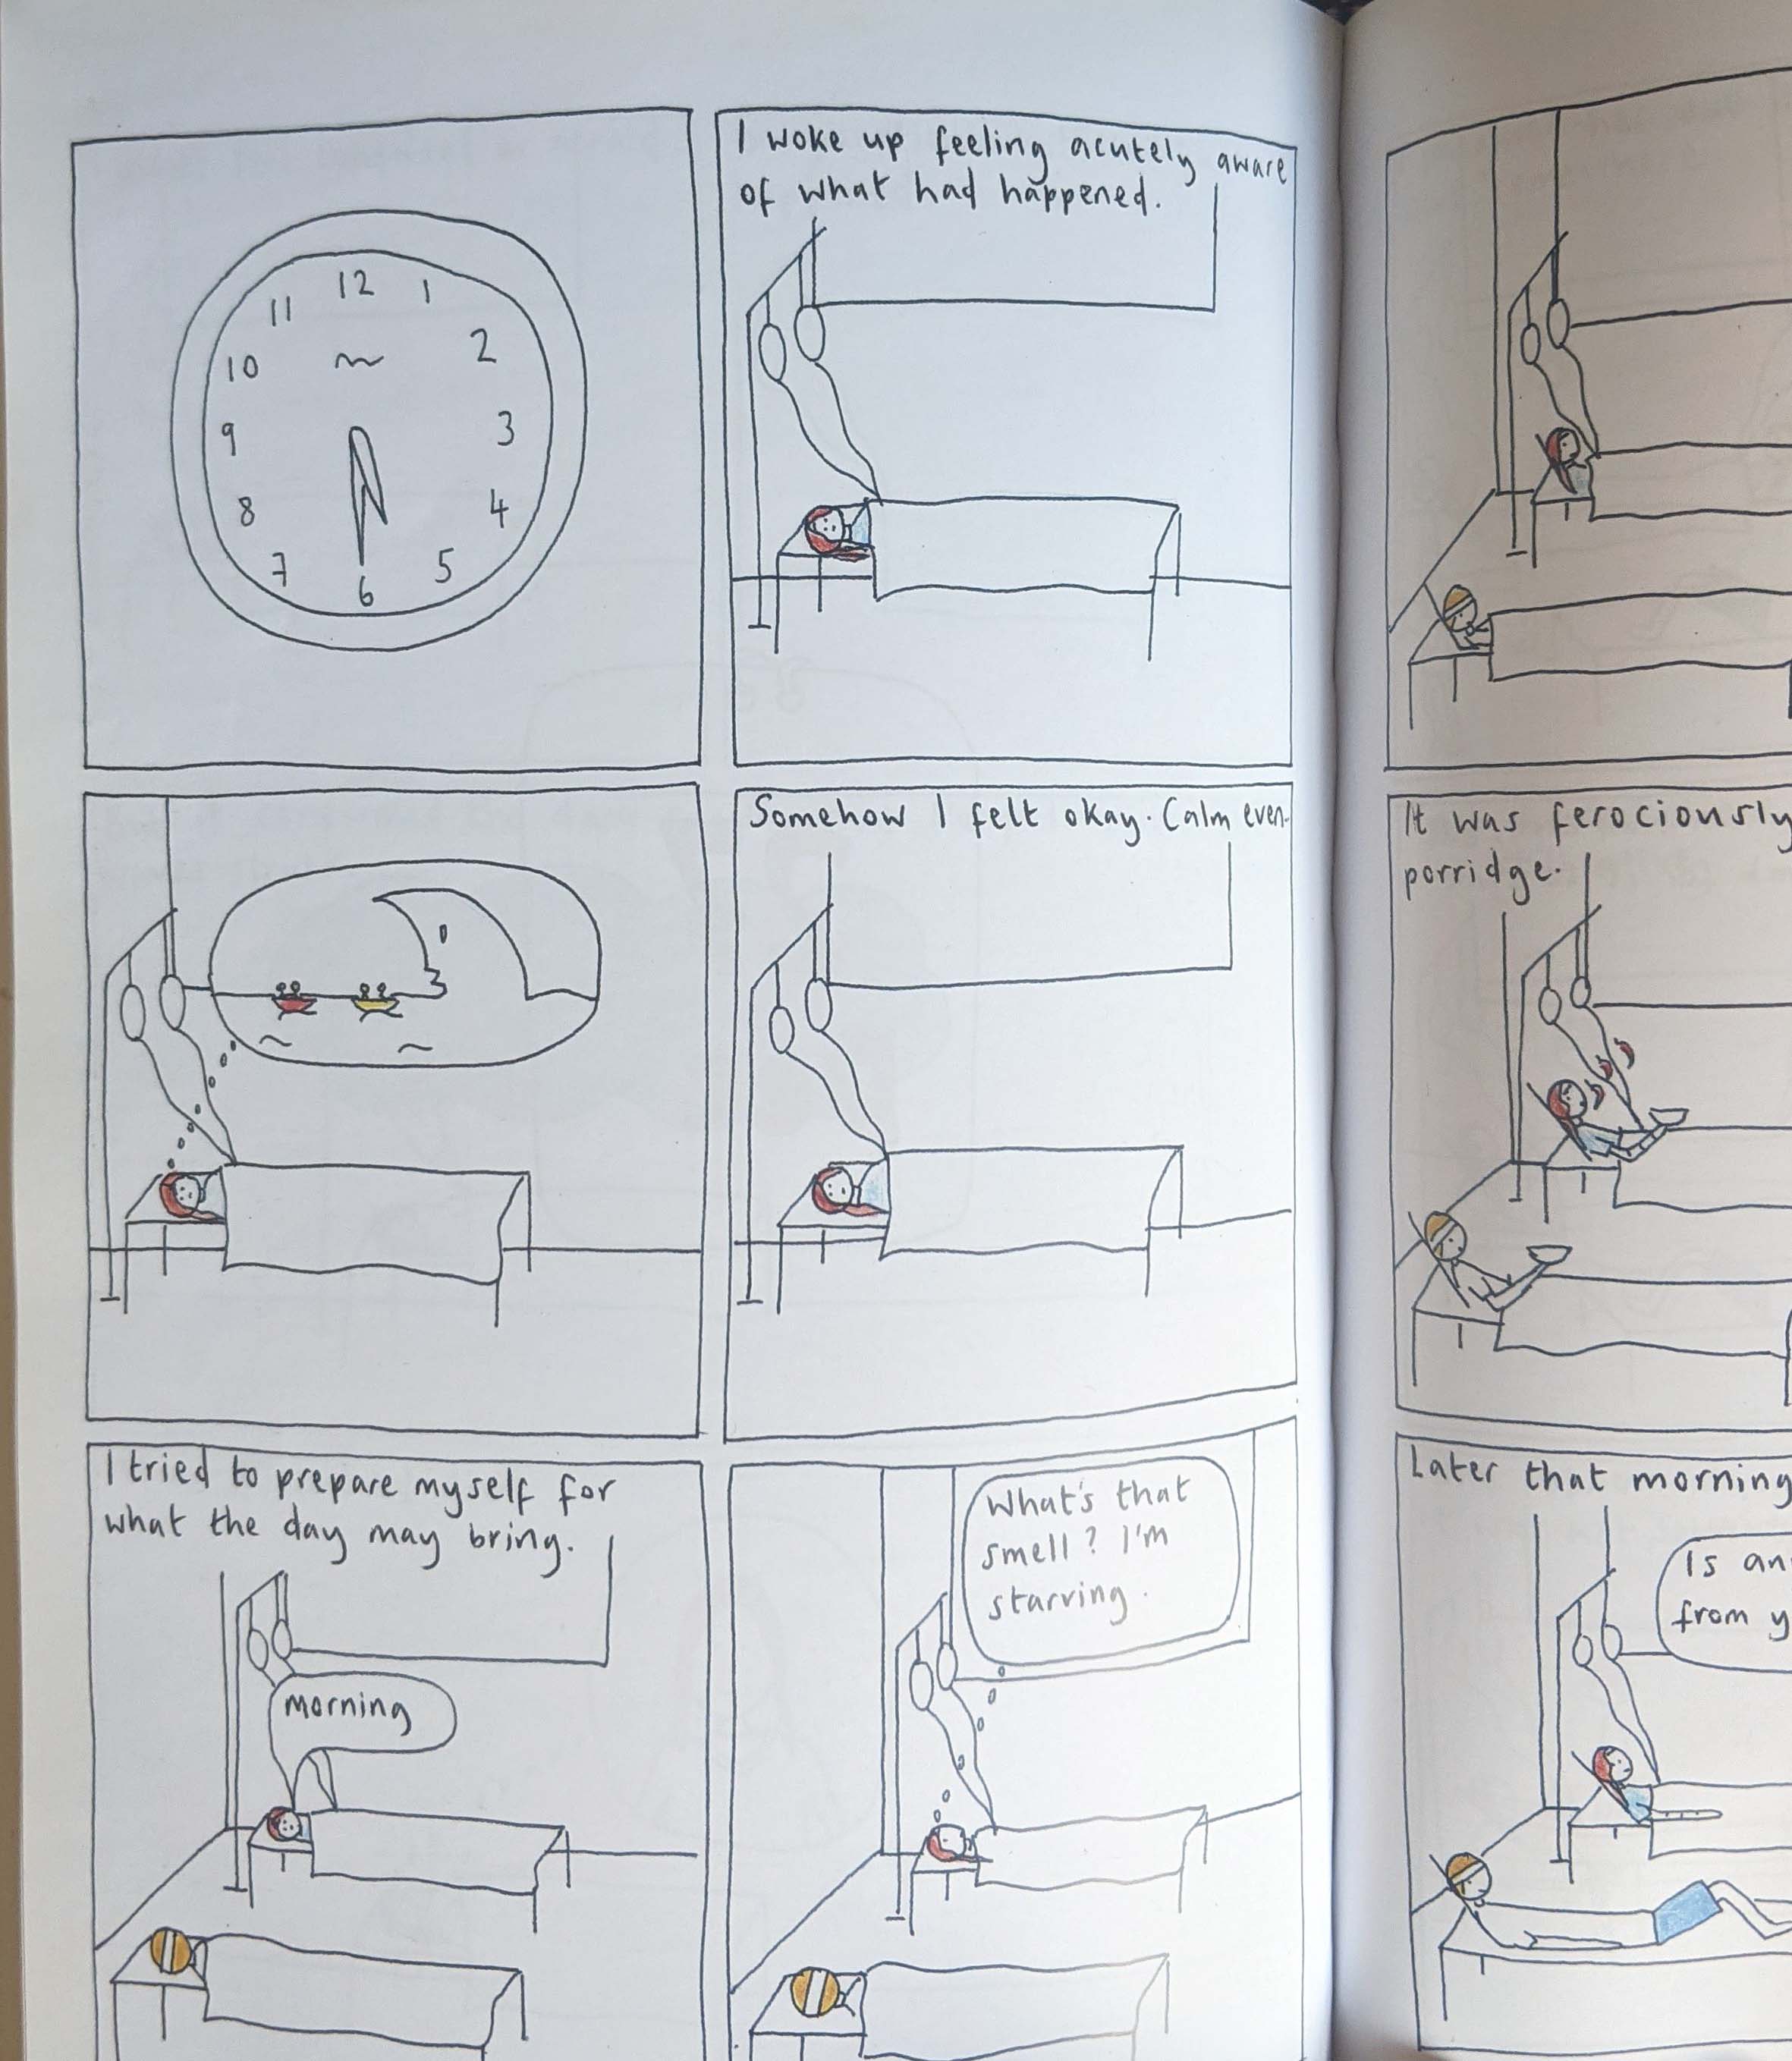 12
1
2
3
4
5
6
7
8
9
10
11
I woke up feeling acutely aware
of what had happened.
Somehow I felt okay. Calm even.
I tried to prepare myself for
what the day may bring.
morning
What's that
smell? I'm
starving.
It was ferociously
porridge.
Later that morning
Is an
from y